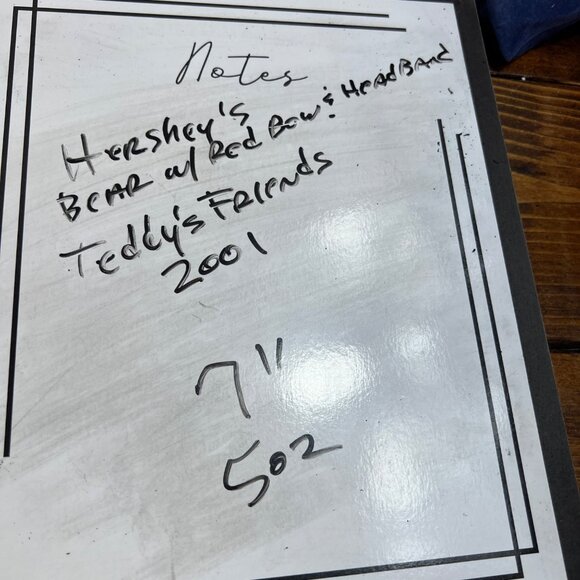 Notes
Hershey's
Bear w/ Red Bow & HeadBand
Teddy's Friends
2001
7"
502